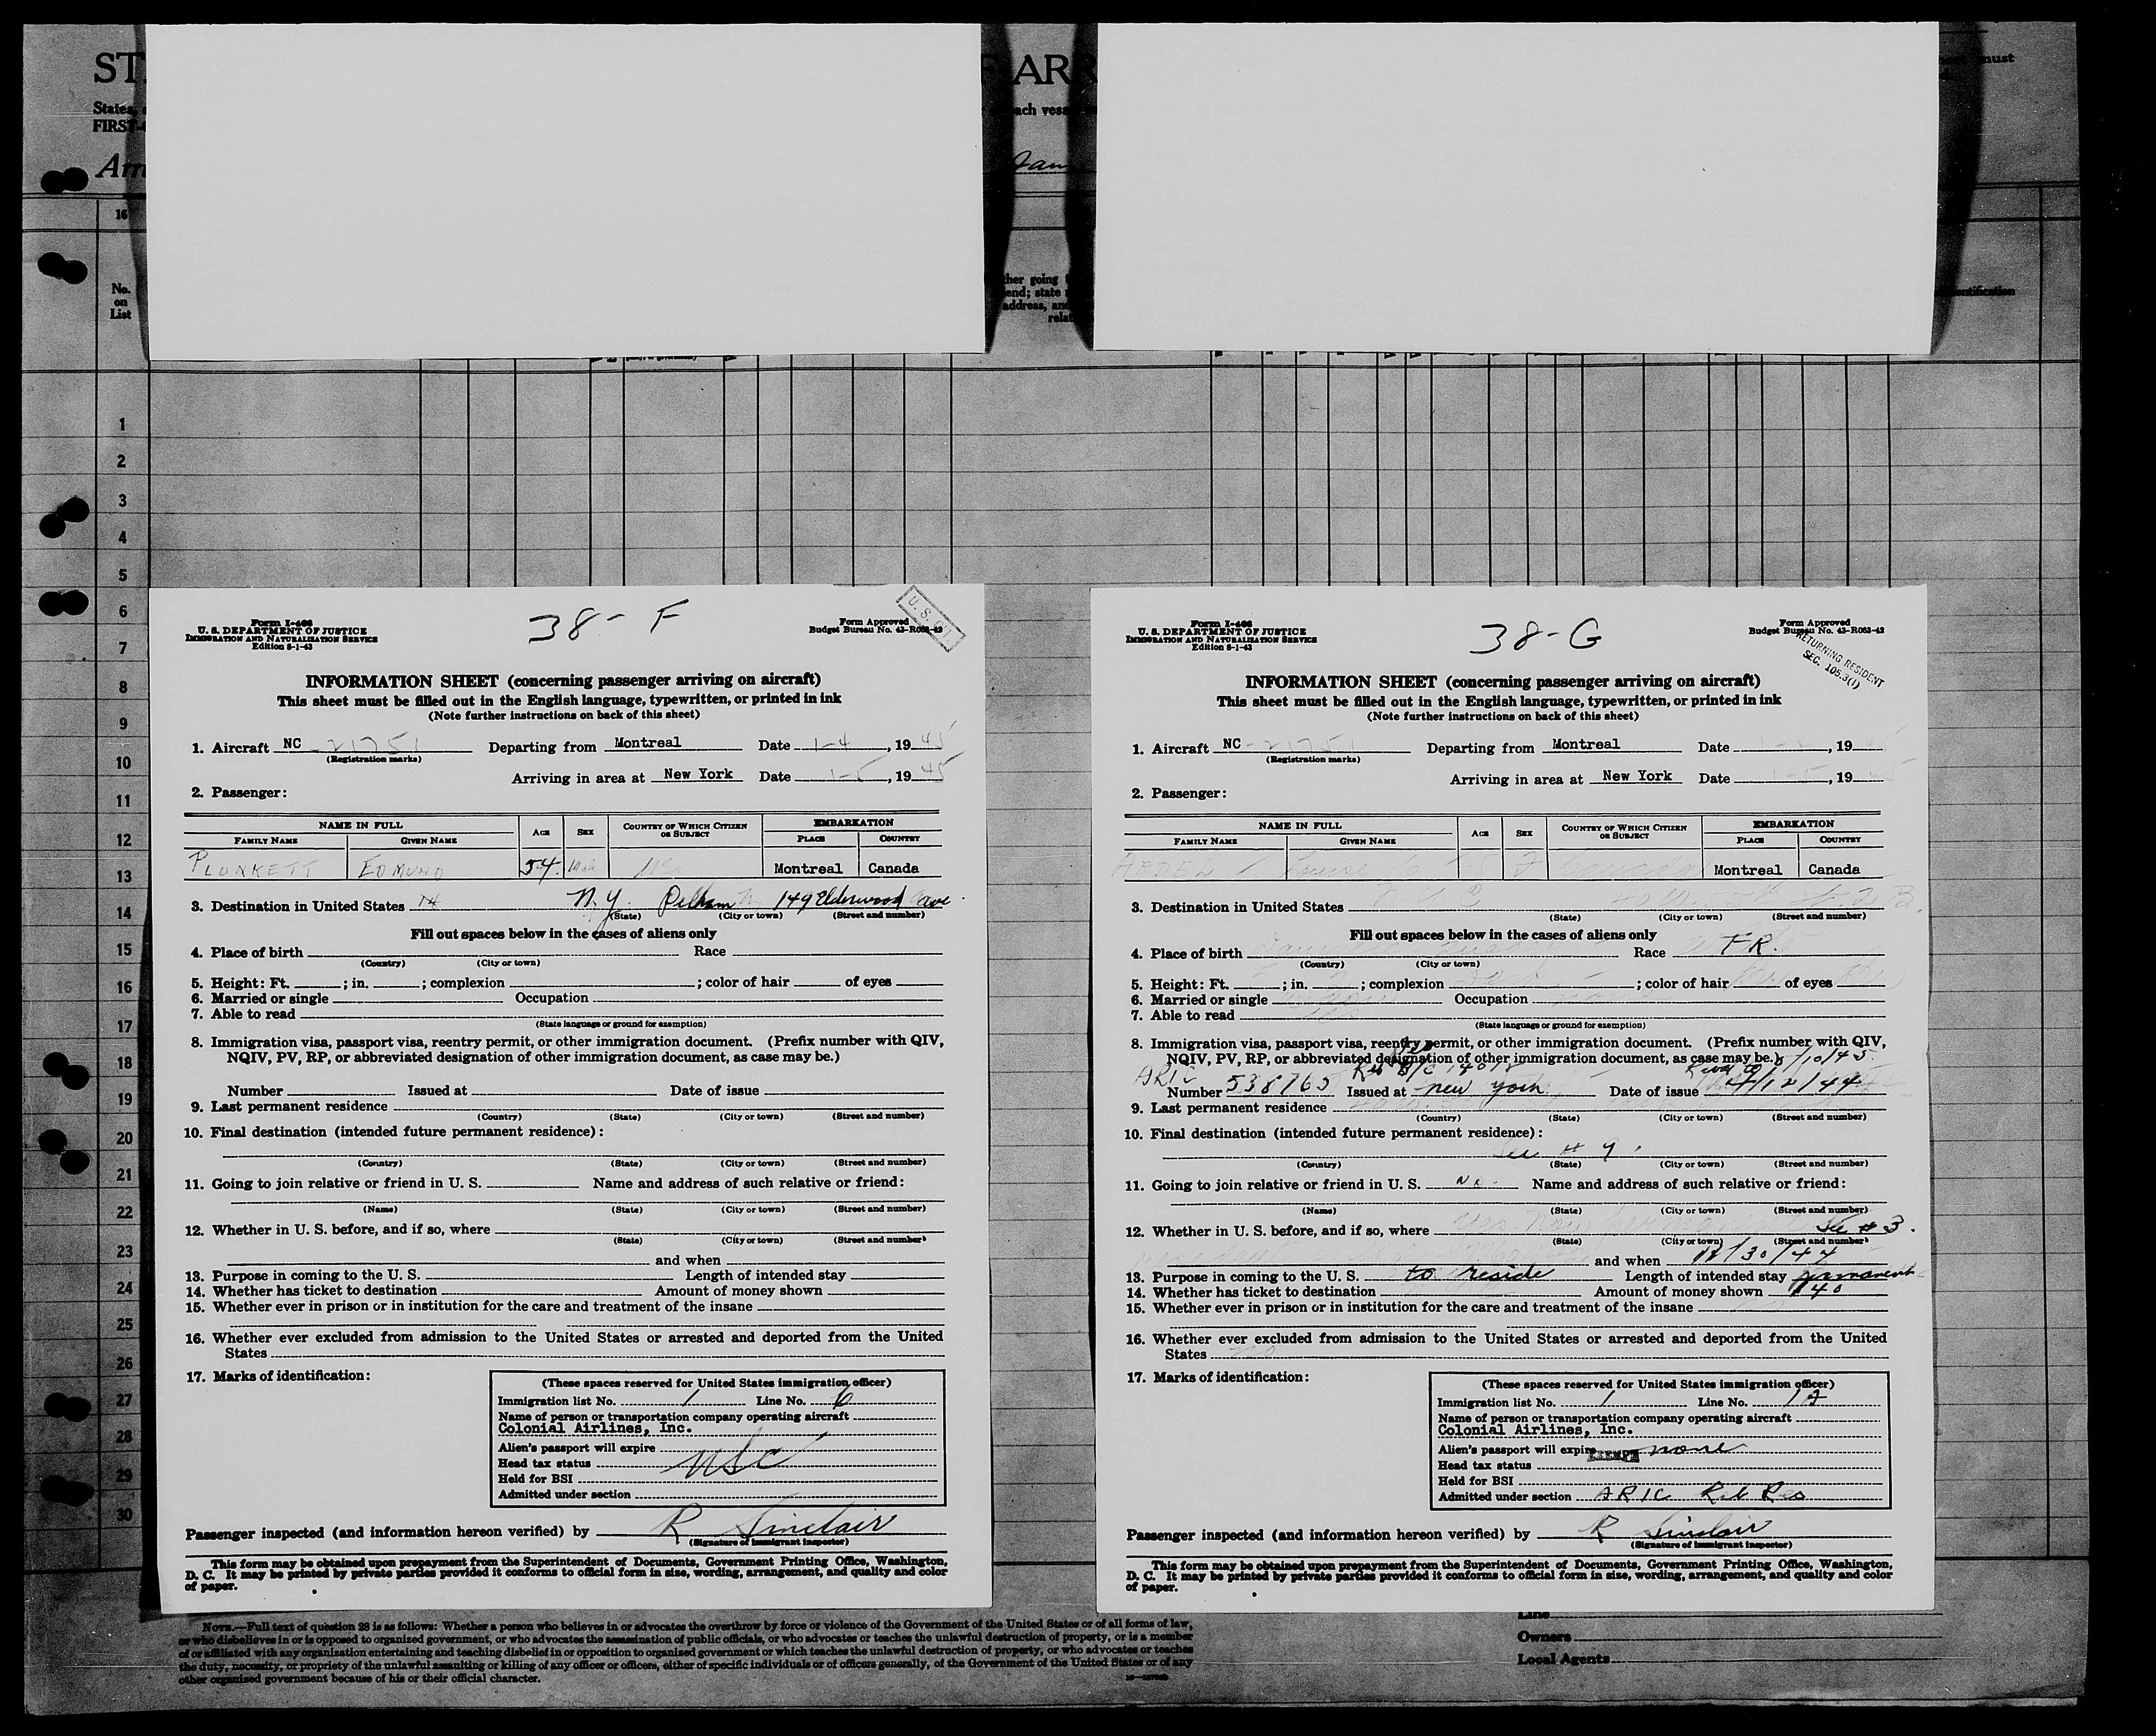 ST
States,
FIRST-
Arr
ARR
ach vess
Jan
must
16
No.
on
List
her going
end; state
address, and
relat
entification
1
2
3
4
5
6
7
8
9
10
11
12
13
14
15
16
17
18
19
20
21
22
23
24
25
26
27
28
29
30
Form I-466
U. S. DEPARTMENT OF JUSTICE
IMMIGRATION AND NATURALIZATION SERVICE
Edition 8-1-43
38-F
Form Approved
Budget Bureau No. 43-R053-42
INFORMATION SHEET (concerning passenger arriving on aircraft)
This sheet must be filled out in the English language, typewritten, or printed in ink
(Note further instructions on back of this sheet)
1. Aircraft NC-21751 Departing from Montreal Date 1-4, 1945
(Registration marks)
Arriving in area at New York Date 1-5, 1945
2. Passenger:
NAME IN FULL AGE SEX COUNTRY OF WHICH CITIZEN OR SUBJECT EMBARKATION
FAMILY NAME GIVEN NAME PLACE COUNTRY
PLUNKETT EDMUND 54 Male US Montreal Canada
3. Destination in United States N.Y. Pelham 149 Elderwood Ave
(State) (City or town) (Street and number)
Fill out spaces below in the cases of aliens only
4. Place of birth Race
(Country) (City or town)
5. Height: Ft. ; in. ; complexion ; color of hair of eyes
6. Married or single Occupation
7. Able to read
(State language or ground for exemption)
8. Immigration visa, passport visa, reentry permit, or other immigration document. (Prefix number with QIV,
NQIV, PV, RP, or abbreviated designation of other immigration document, as case may be.)
Number Issued at Date of issue
9. Last permanent residence
(Country) (State) (City or town) (Street and number)
10. Final destination (intended future permanent residence):
(Country) (State) (City or town) (Street and number)
11. Going to join relative or friend in U. S. Name and address of such relative or friend:
(Name) (State) (City or town) (Street and number)
12. Whether in U. S. before, and if so, where
(State) (City or town) (Street and number)
and when
13. Purpose in coming to the U. S. Length of intended stay
14. Whether has ticket to destination Amount of money shown
15. Whether ever in prison or in institution for the care and treatment of the insane
16. Whether ever excluded from admission to the United States or arrested and deported from the United
States
17. Marks of identification:
(These spaces reserved for United States immigration officer)
Immigration list No. 1 Line No. 6
Name of person or transportation company operating aircraft
Colonial Airlines, Inc.
Alien's passport will expire
Head tax status USC
Held for BSI
Admitted under section
Passenger inspected (and information hereon verified) by R Sinclair
(Signature of immigrant inspector)
This form may be obtained upon prepayment from the Superintendent of Documents, Government Printing Office, Washington,
D. C. It may be printed by private parties provided it conforms to official form in size, wording, arrangement, and quality and color
of paper.
Form I-466
U. S. DEPARTMENT OF JUSTICE
IMMIGRATION AND NATURALIZATION SERVICE
Edition 8-1-43
38-G
Form Approved
Budget Bureau No. 43-R053-42
RETURNING RESIDENT
SEC. 105.3(1)
INFORMATION SHEET (concerning passenger arriving on aircraft)
This sheet must be filled out in the English language, typewritten, or printed in ink
(Note further instructions on back of this sheet)
1. Aircraft NC-21751 Departing from Montreal Date , 19
(Registration marks)
Arriving in area at New York Date 1-5, 1945
2. Passenger:
NAME IN FULL AGE SEX COUNTRY OF WHICH CITIZEN OR SUBJECT EMBARKATION
FAMILY NAME GIVEN NAME PLACE COUNTRY
Louise F Canada Montreal Canada
3. Destination in United States
(State) (City or town) (Street and number)
Fill out spaces below in the cases of aliens only
4. Place of birth Race FR.
(Country) (City or town)
5. Height: Ft. ; in. ; complexion ; color of hair of eyes
6. Married or single Occupation
7. Able to read Yes
(State language or ground for exemption)
8. Immigration visa, passport visa, reentry permit, or other immigration document. (Prefix number with QIV,
NQIV, PV, RP, or abbreviated designation of other immigration document, as case may be.)
ARIC
Number 538765 Issued at New York Date of issue 4/12/44
9. Last permanent residence
(Country) (State) (City or town) (Street and number)
10. Final destination (intended future permanent residence):
See #
(Country) (State) (City or town) (Street and number)
11. Going to join relative or friend in U. S. No Name and address of such relative or friend:
(Name) (State) (City or town) (Street and number)
12. Whether in U. S. before, and if so, where Yes See #3.
(State) (City or town) (Street and number)
and when 12/30/44
13. Purpose in coming to the U. S. to reside Length of intended stay permanent
14. Whether has ticket to destination Amount of money shown 140
15. Whether ever in prison or in institution for the care and treatment of the insane
16. Whether ever excluded from admission to the United States or arrested and deported from the United
States no
17. Marks of identification:
(These spaces reserved for United States immigration officer)
Immigration list No. 1 Line No.
Name of person or transportation company operating aircraft
Colonial Airlines, Inc.
Alien's passport will expire none
EXEMPT
Head tax status
Held for BSI
Admitted under section ARIC Ret Res
Passenger inspected (and information hereon verified) by R Sinclair
(Signature of immigrant inspector)
This form may be obtained upon prepayment from the Superintendent of Documents, Government Printing Office, Washington,
D. C. It may be printed by private parties provided it conforms to official form in size, wording, arrangement, and quality and color
of paper.
NOTE.—Full text of question 28 is as follows: Whether a person who believes in or advocates the overthrow by force or violence of the Government of the United States or of all forms of law,
or who disbelieves in or is opposed to organized government, or who advocates the assassination of public officials, or who advocates or teaches the unlawful destruction of property, or is a member
of or affiliated with any organization entertaining and teaching disbelief in or opposition to organized government or which teaches the unlawful destruction of property, or who advocates or teaches
the duty, necessity, or propriety of the unlawful assaulting or killing of any officer or officers, either of specific individuals or of officers generally, of the Government of the United States or of any
other organized government because of his or their official character.
Line
Owners
Local Agents